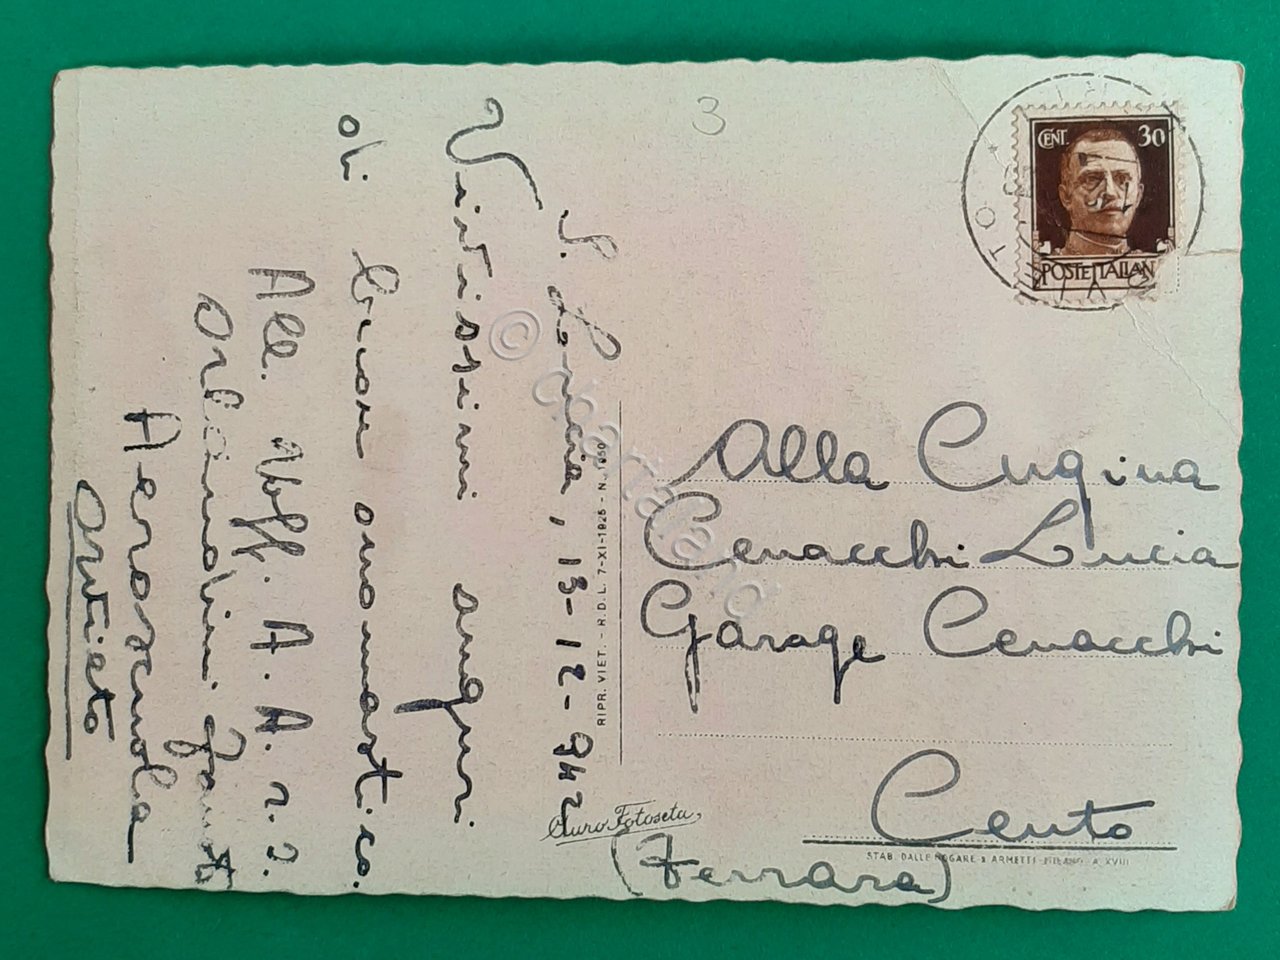 3
CENT. 30
POSTE ITALIAN
ORVIETO
S. Lucia, 13-12-942
Vivissimi auguri
di buon onomastico.
All. Uff. A. A. r. n.
Orlandini Fausto
Aeroscuola
Orvieto
Alla Cugina
Cenacchi Lucia
Garage Cenacchi
Cento
(Ferrara)
RIPR. VIET. - R.D.L. 7-XI-1925 - N. 1950
Auro Fotoseta
STAB. DALLE NOGARE & ARMETTI - MILANO A. XVIII
© cartaland